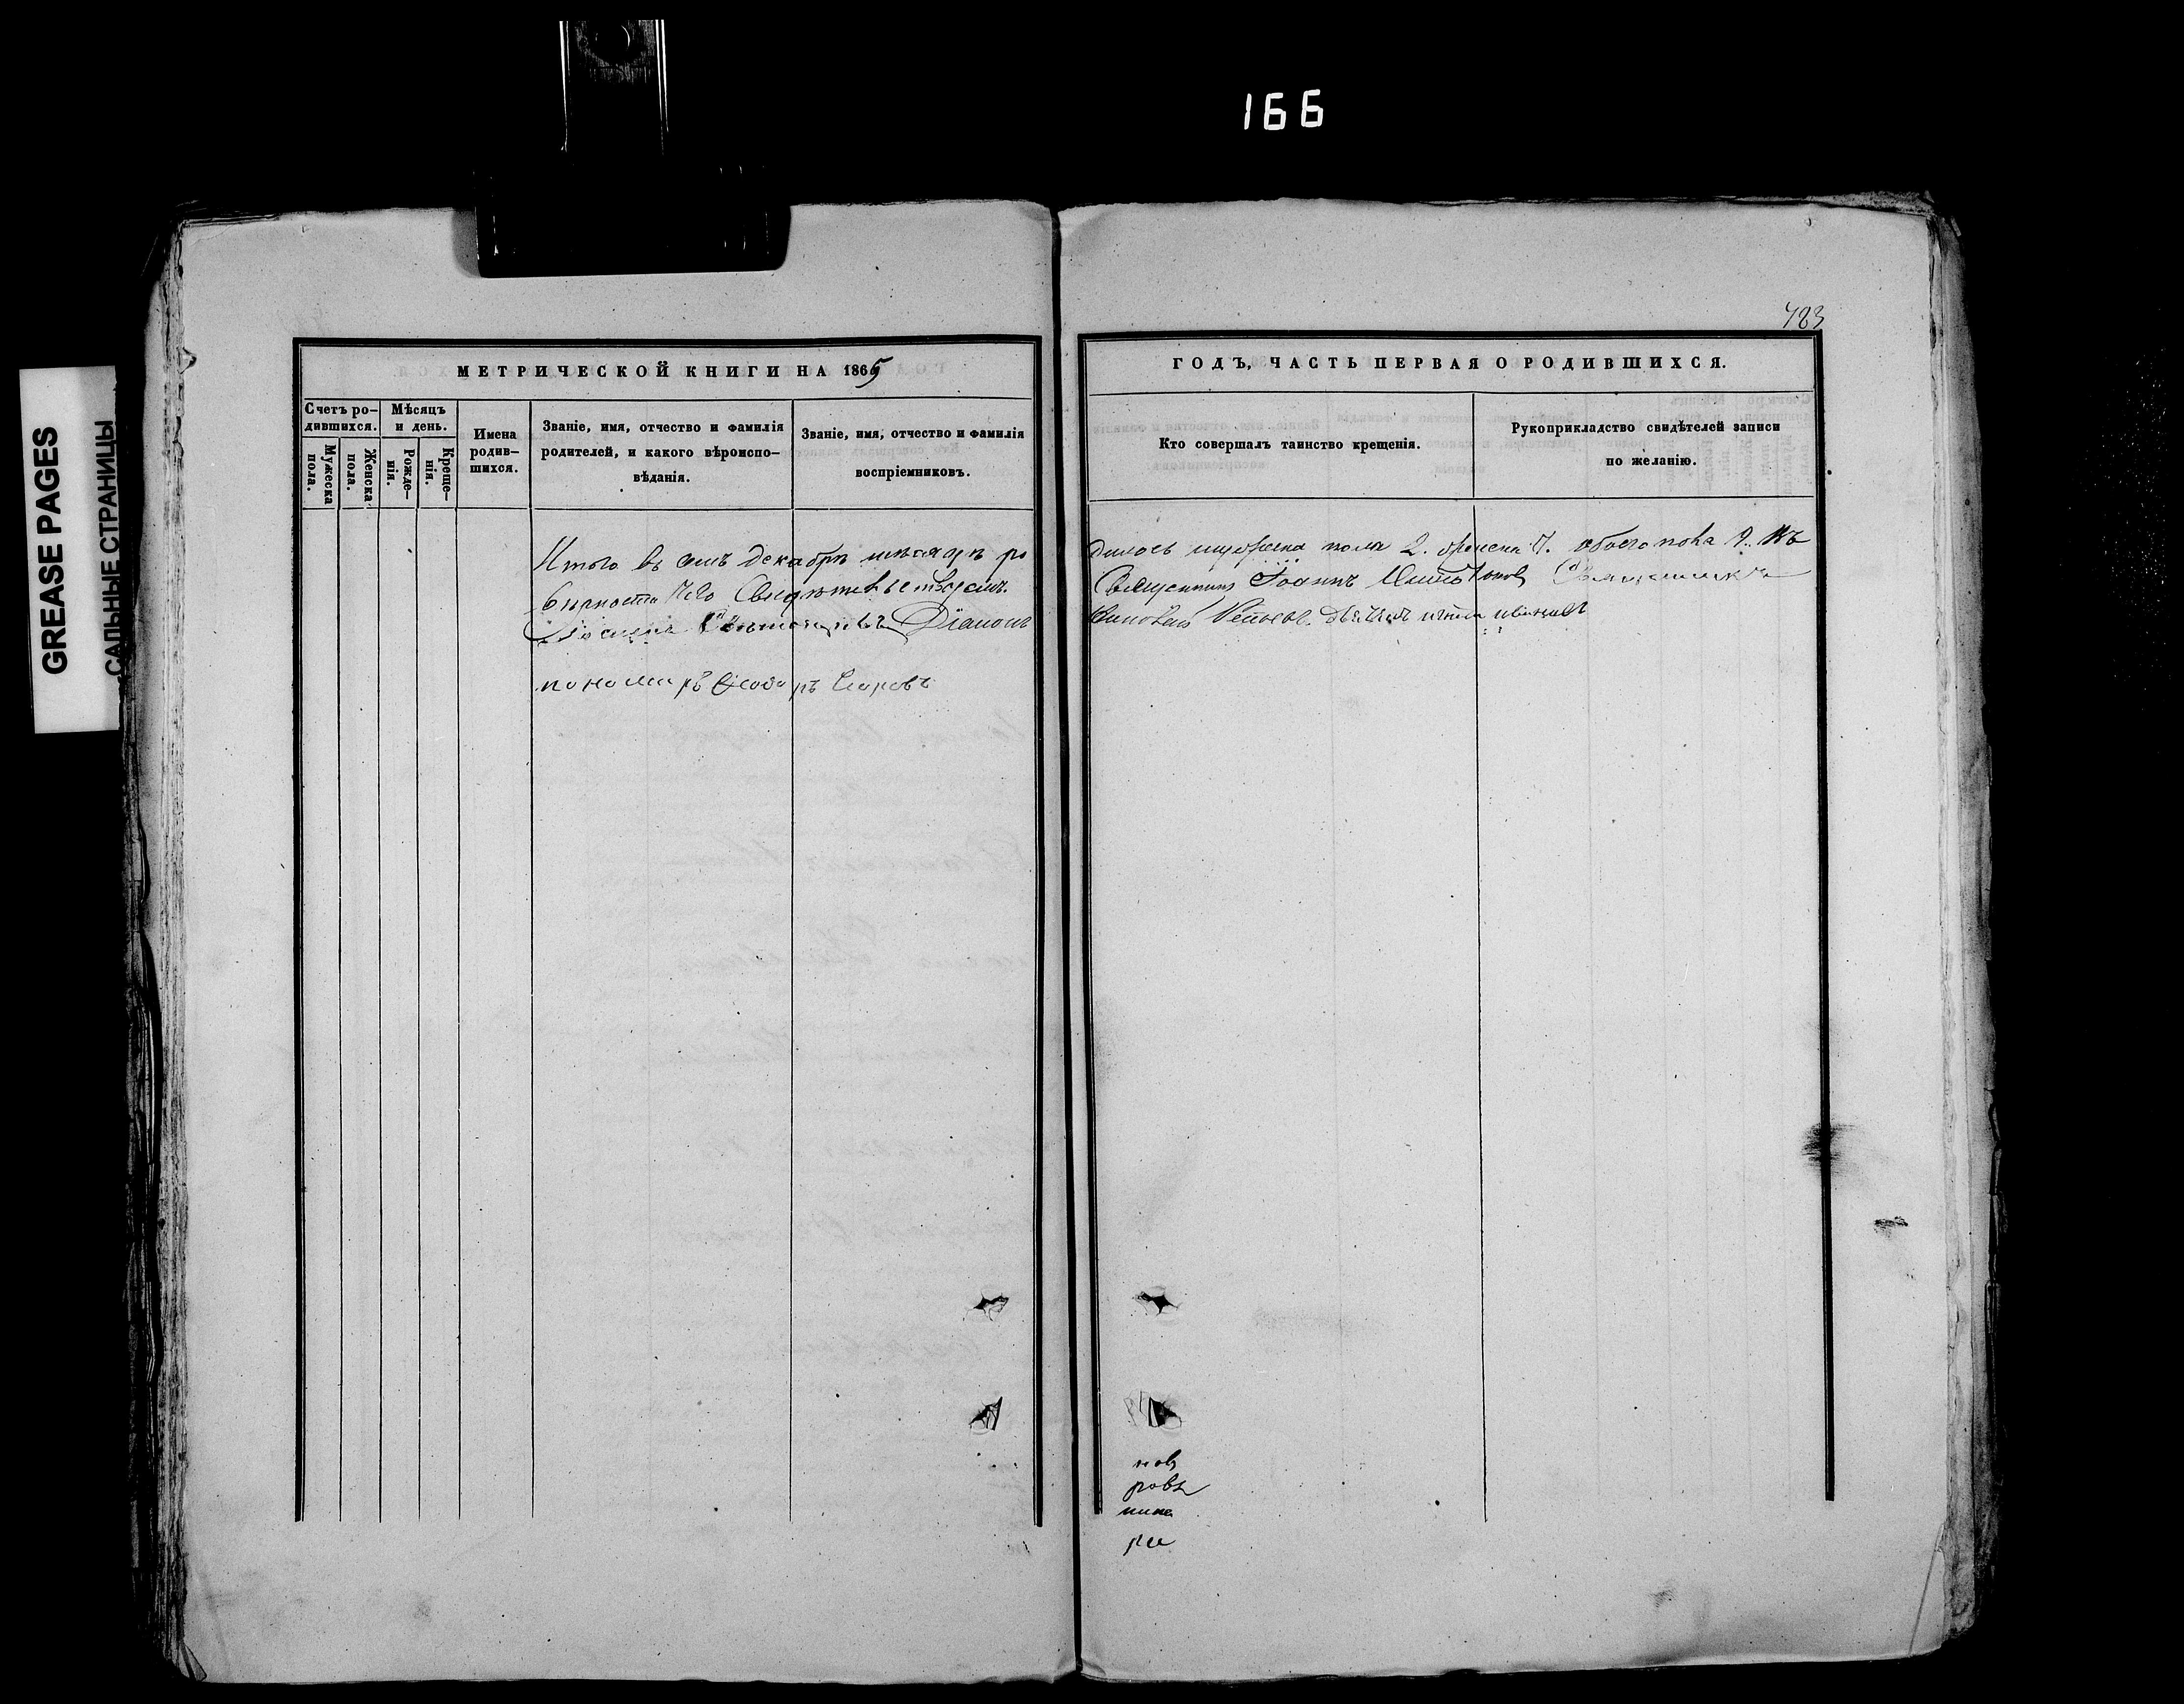 166
GREASE PAGES
САЛЬНЫЕ СТРАНИЦЫ
483
МЕТРИЧЕСКОЙ КНИГИ НА 1865
Счетъ ро-
дившихся.
Мужеска
пола.
Женска
пола.
Мѣсяцъ
и день.
Рожде-
нія.
Креще-
нія.
Имена
родив-
шихся.
Званіе, имя, отчество и фамилія
родителей, и какого вѣроиспо-
вѣданія.
Званіе, имя, отчество и фамилія
воспріемниковъ.
Итого въ семъ декабрѣ мѣсяцѣ ро
вѣрности чего свидѣтельствуемъ.
Діаконъ
пономарь Ѳеодоръ
ГОДЪ, ЧАСТЬ ПЕРВАЯ О РОДИВШИХСЯ.
Кто совершалъ таинство крещенія.
Рукоприкладство свидѣтелей записи
по желанію.
дилось мужеска пола 2. женска 7. обоего пола 9. Къ
Священникъ Іоаннъ Священникъ
новъ
ровъ